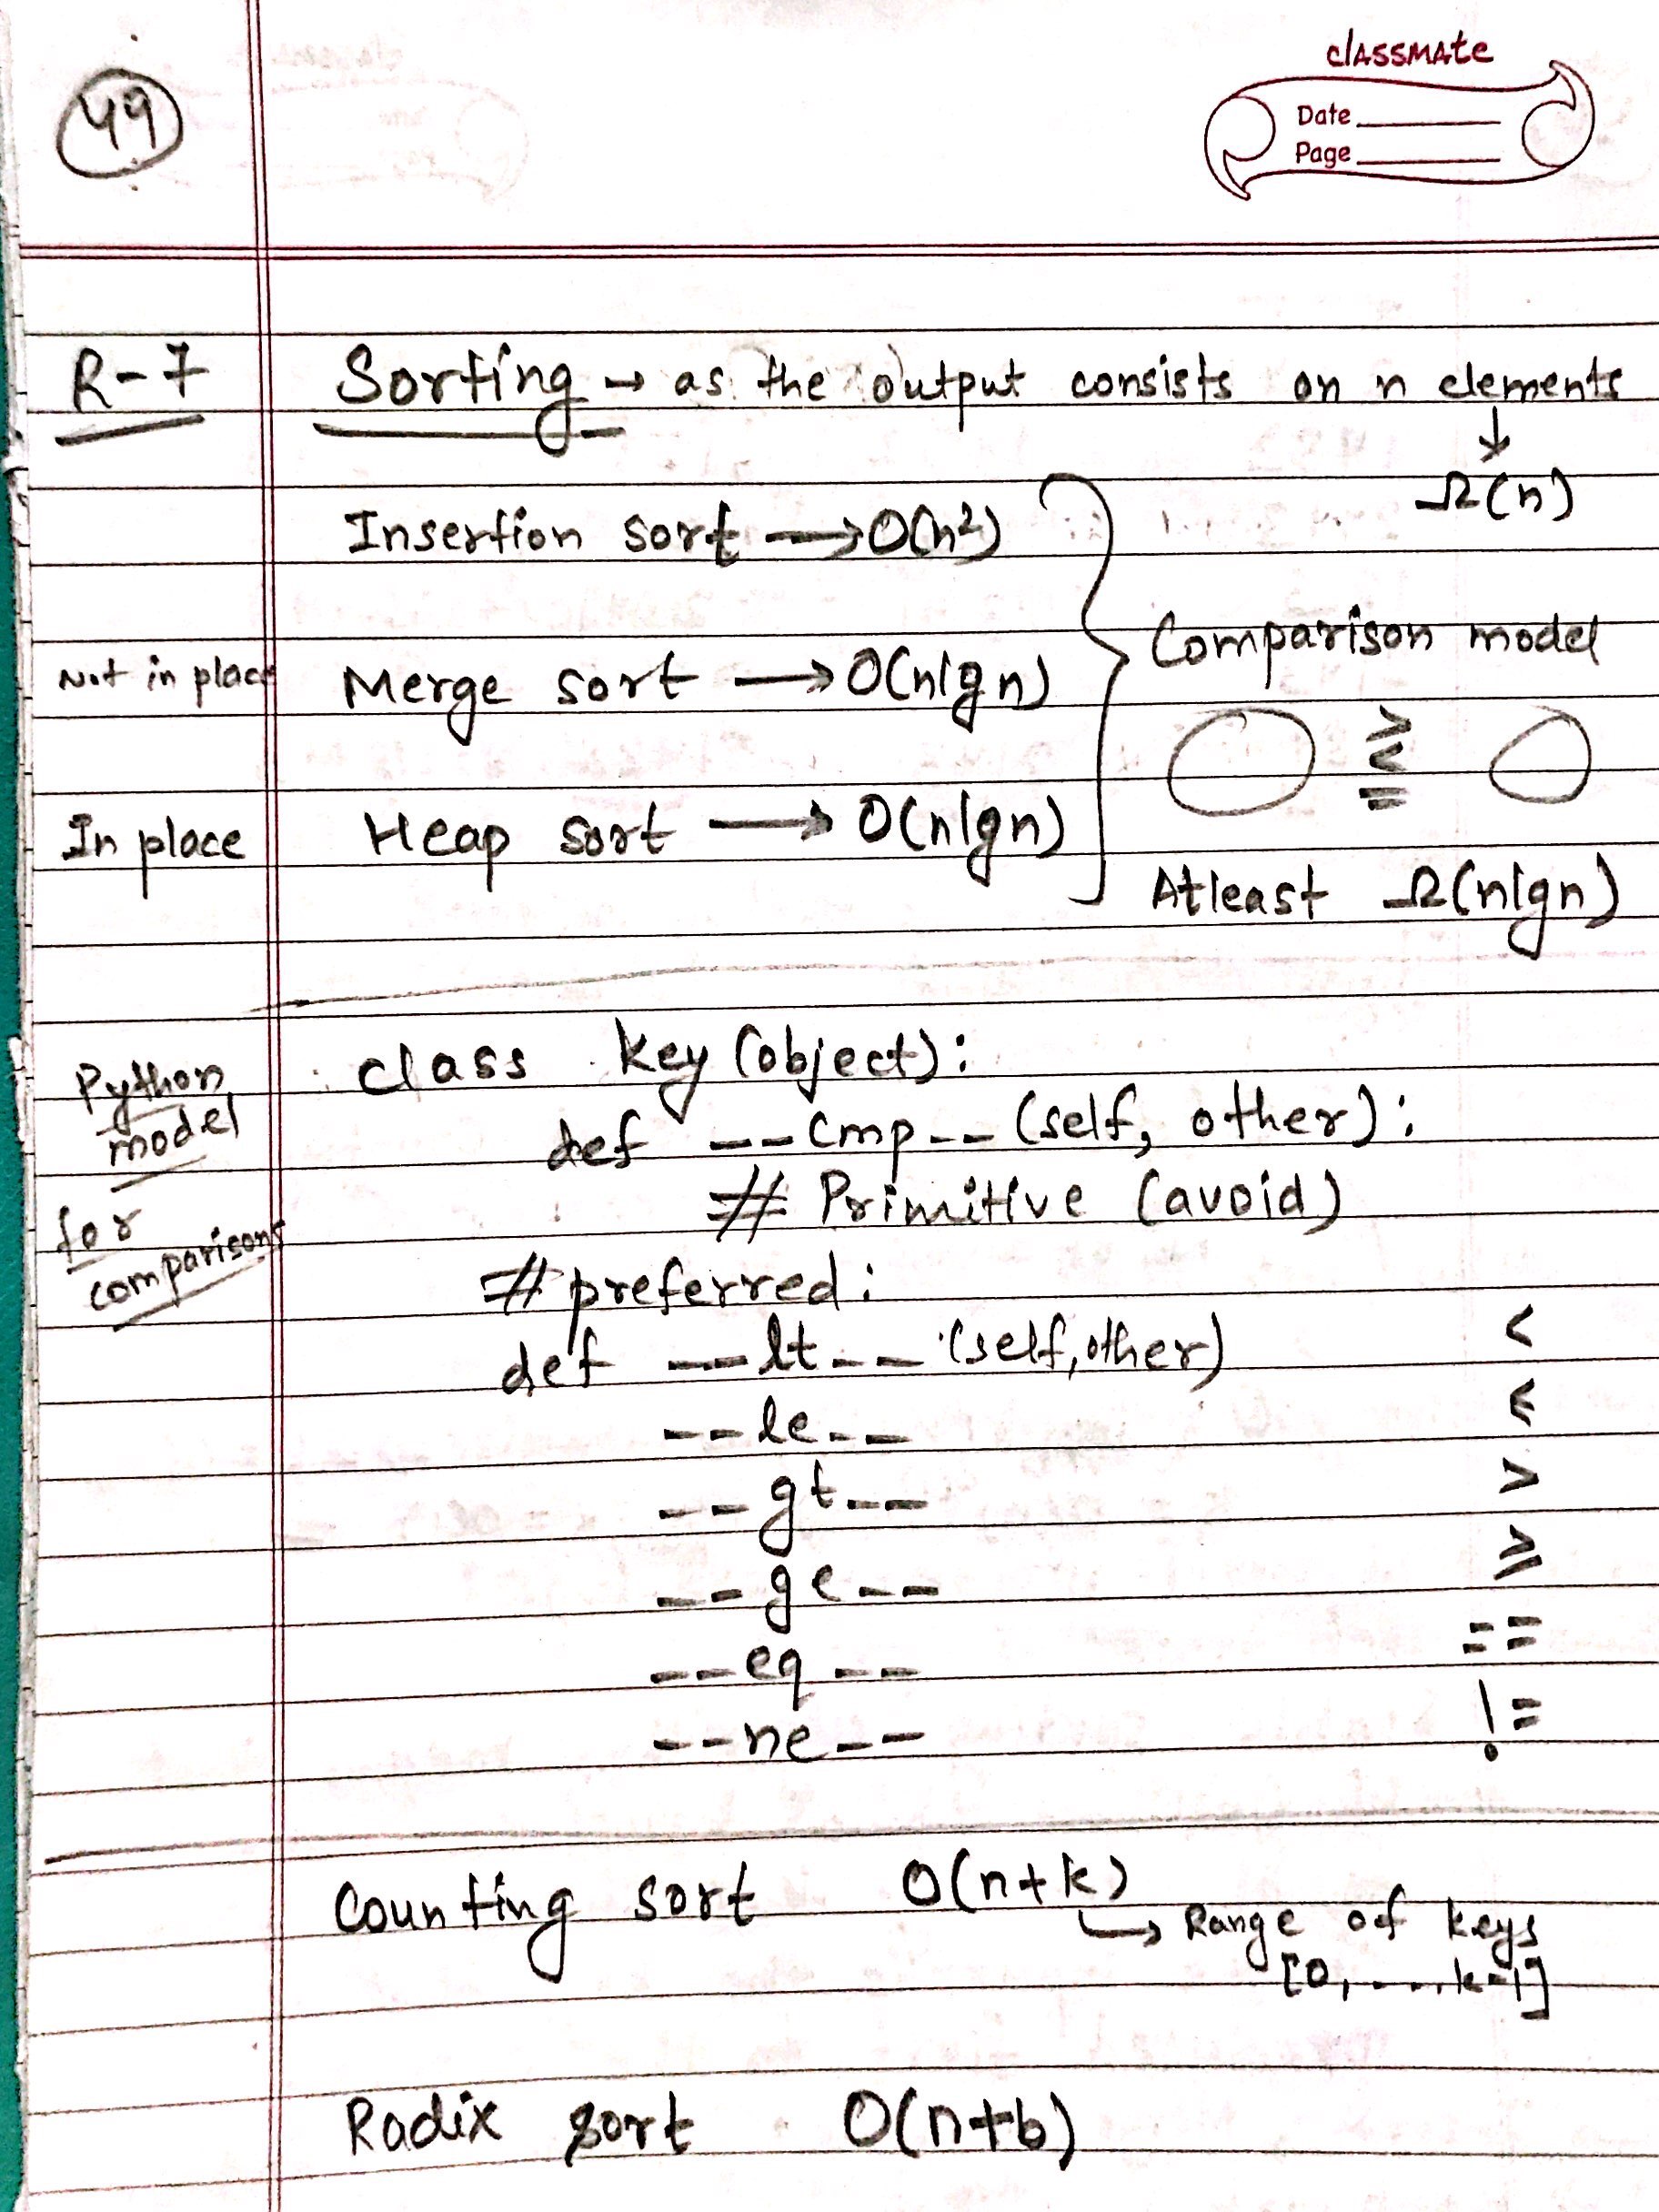 49
classmate
Date
Page
R-7 Sorting → as the output consists on n elements
↓
Ω(n)
Insertion sort → O(n²)
Comparison model
Not in place Merge sort → O(nlgn)
> < =
In place Heap sort → O(nlgn)
Atleast Ω(nlgn)
Python model for comparisons
class key (object):
def __cmp__ (self, other):
# Primitive (avoid)
# preferred:
def __lt__ (self, other) <
__le__ ≤
__gt__ >
__ge__ ≥
__eq__ ==
__ne__ !=
Counting sort O(n+k)
↳ Range of keys
[0, ....k-1]
Radix sort O(n+b)